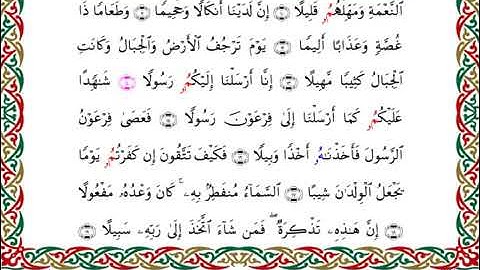 ٱلنَّعْمَةِ وَمَهِّلْهُمُۥ قَلِيلًا ۝ إِنَّ لَدَيْنَا أَنكَالًا وَجَحِيمًا ۝ وَطَعَامًا ذَا
غُصَّةٍ وَعَذَابًا أَلِيمًا ۝ يَوْمَ تَرْجُفُ ٱلْأَرْضُ وَٱلْجِبَالُ وَكَانَتِ
ٱلْجِبَالُ كَثِيبًا مَّهِيلًا ۝ إِنَّا أَرْسَلْنَا إِلَيْكُمُۥ رَسُولًا ۝ شَٰهِدًا
عَلَيْكُمُۥ كَمَا أَرْسَلْنَا إِلَىٰ فِرْعَوْنَ رَسُولًا ۝ فَعَصَىٰ فِرْعَوْنُ
ٱلرَّسُولَ فَأَخَذْنَٰهُۥ أَخْذًا وَبِيلًا ۝ فَكَيْفَ تَتَّقُونَ إِن كَفَرْتُمُۥ يَوْمًا
يَجْعَلُ ٱلْوِلْدَٰنَ شِيبًا ۝ ٱلسَّمَآءُ مُنفَطِرٌۢ بِهِۦ ۚ كَانَ وَعْدُهُۥ مَفْعُولًا
۝ إِنَّ هَٰذِهِۦ تَذْكِرَةٌ ۖ فَمَن شَآءَ ٱتَّخَذَ إِلَىٰ رَبِّهِۦ سَبِيلًا ۝